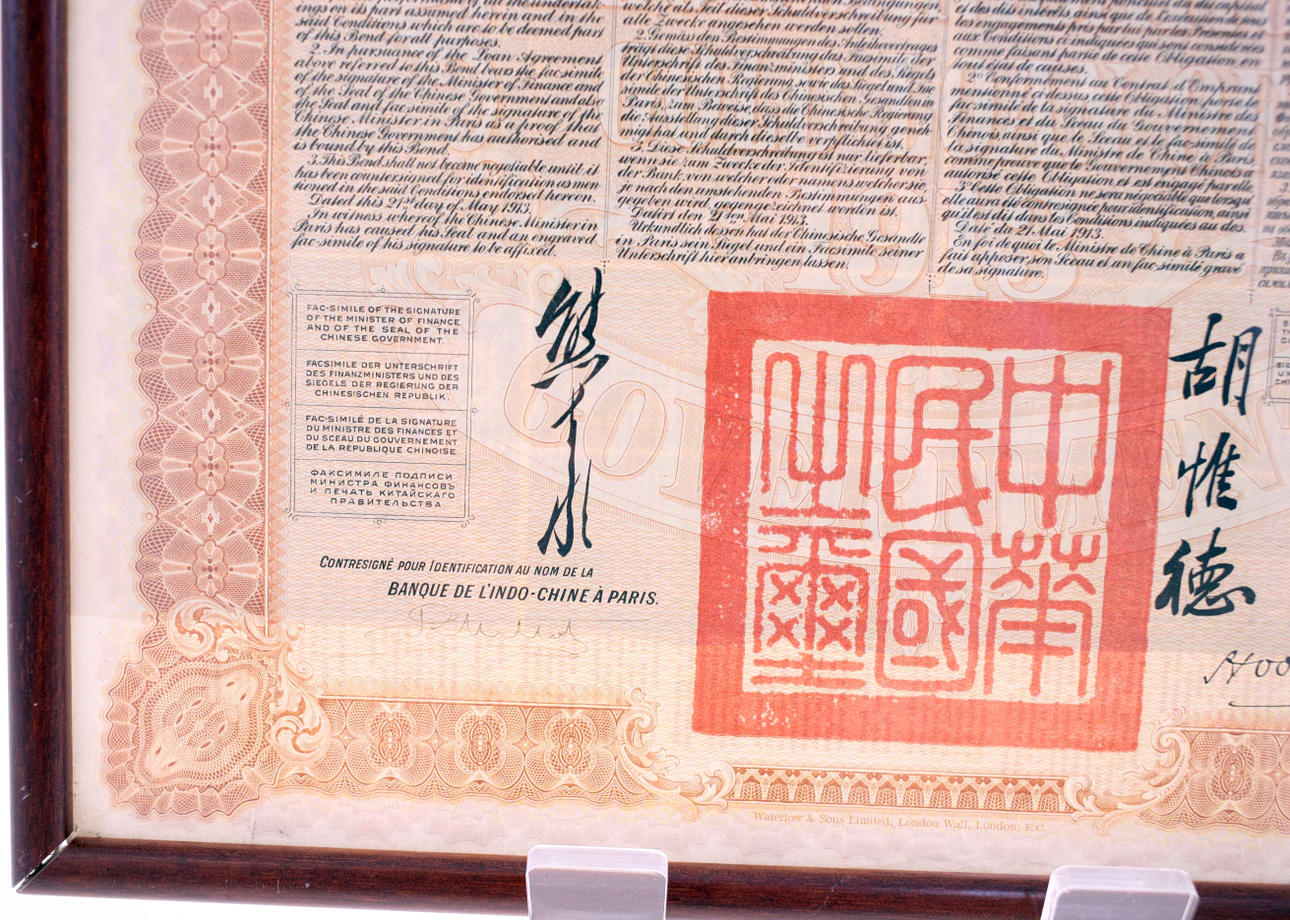 ings on its part assumed herein and in the
said Conditions which are to be deemed part
of this Bond for all purposes.
2. In pursuance of the Loan Agreement
above referred to this Bond bears the facsimile
of the signature of the Minister of Finance and
of the Seal of the Chinese Government and also
the Seal and facsimile of the signature of the
Chinese Minister in Paris as a proof that
the Chinese Government has authorised and
is bound by this Bond.
3. This Bond shall not become negotiable until it
has been countersigned for identification as men-
tioned in the said Conditions endorsed hereon.
Dated this 21st day of May 1913.
In witness whereof the Chinese Minister in
Paris has caused his Seal and an engraved
fac-simile of his signature to be affixed.
welche als Teil dieser Schuldverschreibung für
alle Zwecke angesehen werden sollen.
2. Gemäss den Bestimmungen des Anleihevertrages
trägt diese Schuldverschreibung das Facsimile der
Unterschrift des Finanzministers und des Siegels
der Chinesischen Regierung sowie das Siegel und Fac
simile der Unterschrift des Chinesischen Gesandten in
Paris, zum Beweise, dass die Chinesische Regierung
die Ausstellung dieser Schuldverschreibung geneh-
migt hat und durch dieselbe verpflichtet ist.
3. Diese Schuldverschreibung ist nur lieferbar,
wenn sie zum Zwecke der Identifizierung von
der Bank, von welcher oder namens welcher sie,
je nach den umstehenden Bestimmungen aus-
gegeben wird, gegengezeichnet worden ist.
Datirt den 21ten Mai 1913.
Urkundlich dessen hat der Chinesische Gesandte
in Paris sein Siegel und ein Facsimile seiner
Unterschrift hier anbringen lassen.
et des dits intérêts ainsi que de l'exécution de tous
les engagements pris par lui par les Présentes et
aux Conditions ci-indiquées qui sont considérées
comme faisant partie de cette Obligation en
tout état de causes.
2º Conformément au Contrat d'Emprunt
mentionné ci-dessus, cette Obligation porte le
fac-similé de la signature du Ministre des
Finances et du Sceau du Gouvernement
Chinois ainsi que le Sceau et le fac-similé de
la signature du Ministre de Chine à Paris
comme preuve que le Gouvernement Chinois a
autorisé cette Obligation et est engagé par elle.
3º Cette Obligation sera négociable que lorsqu'
elle aura été contresignée pour identification, ainsi
qu'il est dit dans les Conditions indiquées au dos.
Daté du 21 Mai 1913.
En foi de quoi le Ministre de Chine à Paris a
fait apposer son Sceau et un fac-similé gravé
de sa signature.
1913
GOVERNMENT
FAC-SIMILE OF THE SIGNATURE
OF THE MINISTER OF FINANCE
AND OF THE SEAL OF THE
CHINESE GOVERNMENT.
FACSIMILE DER UNTERSCHRIFT
DES FINANZMINISTERS UND DES
SIEGELS DER REGIERUNG DER
CHINESISCHEN REPUBLIK.
FAC-SIMILÉ DE LA SIGNATURE
DU MINISTRE DES FINANCES ET
DU SCEAU DU GOUVERNEMENT
DE LA RÉPUBLIQUE CHINOISE.
ФАКСИМИЛЕ ПОДПИСИ
МИНИСТРА ФИНАНСОВЪ
И ПЕЧАТЬ КИТАЙСКАГО
ПРАВИТЕЛЬСТВА
熊
中華
民國
之璽
胡惟德
CONTRESIGNÉ POUR IDENTIFICATION AU NOM DE LA
BANQUE DE L'INDO-CHINE À PARIS.
Waterlow & Sons Limited, London Wall, London, E.C.